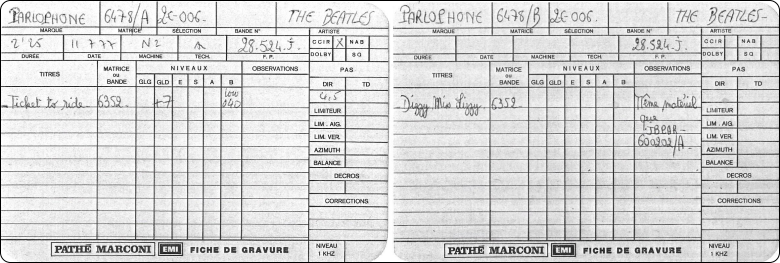 PARLOPHONE 6478/A 2C-006. THE BEATLES-
MARQUE MATRICE SÉLECTION BANDE N° ARTISTE
2'25 11.7.77 N2 A 28.524.J. CCIR X NAB
DURÉE DATE MACHINE TECH. F.P. DOLBY SQ
TITRES MATRICE ou BANDE NIVEAUX OBSERVATIONS PAS
GLG GLD E S A B DIR TD
low 4,5
Ticket to ride 6352 +7 040
LIMITEUR
LIM. AIG.
LIM. VER.
AZIMUTH
BALANCE
DECROS
CORRECTIONS
PATHÉ MARCONI EMI FICHE DE GRAVURE NIVEAU 1 KHZ
PARLOPHONE 6478/B 2C-006. THE BEATLES-
MARQUE MATRICE SÉLECTION BANDE N° ARTISTE
28.524.J. CCIR NAB
DURÉE DATE MACHINE TECH. F.P. DOLBY SQ
TITRES MATRICE ou BANDE NIVEAUX OBSERVATIONS PAS
GLG GLD E S A B DIR TD
Dizzy Miss Lizzy 6352 même matériel
que
JBPAR-
600202/A
LIMITEUR
LIM. AIG.
LIM. VER.
AZIMUTH
BALANCE
DECROS
CORRECTIONS
PATHÉ MARCONI EMI FICHE DE GRAVURE NIVEAU 1 KHZ